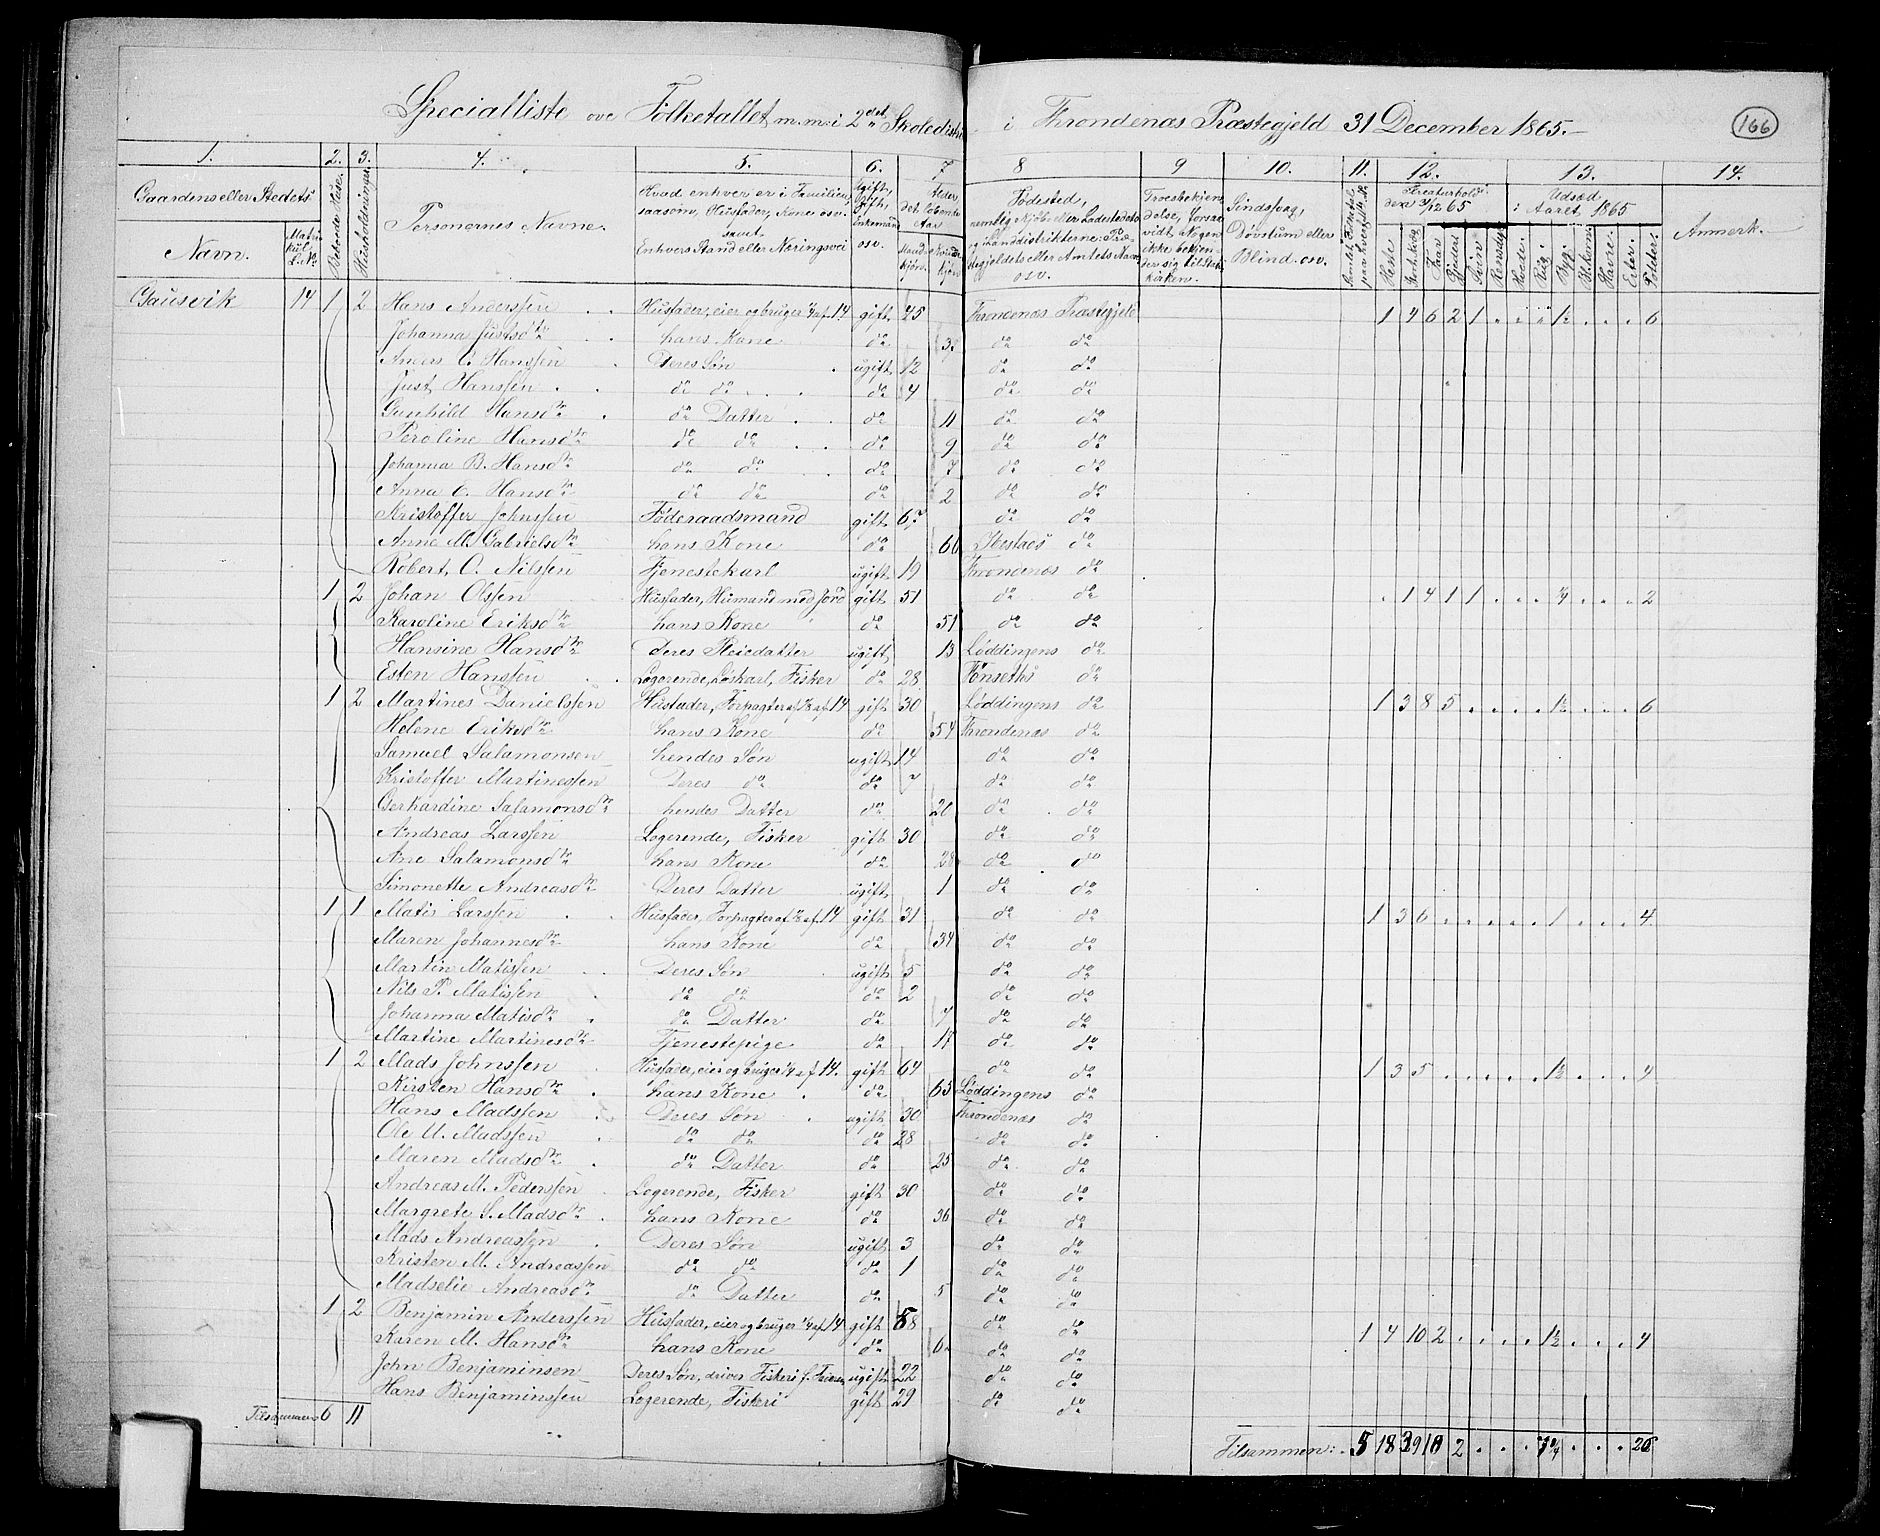 Specialliste ove Folketallet m.m. i 2det Skoledistr i Throndenæs Præstegjeld 31 December 1865.
166
1. 2. 3. 4. 5. 6. 7 8 9 10. 11. 12. 13. 14.
Gaardens eller Stedets Navn. Matrikül L.No Beboede Huse. Husholdninger. Personernes Navne. Hvad enhver er i Familien, saasom, Husfader, Kone osv. samt Enhvers Stand eller Næringsvei Ugift, gift, enkemand osv. Födested, Sindssvag, Dövstum eller Blind osv. Kreaturhold den 31/12 65 Udsæd i Aaret 1865 Anmerk.
Heste Storkvæg Faar Gjeder Svin Rensdyr Hvede Rüg Byg Bl.korn Havre Erter Poteter
Gausvik 14 1 2 Hans Anderssen Husfader, eier og bruger 1/4 af 14 gift 45 Throndenæs Præstegjeld 1 4 6 2 1 . . . 1½ . . . 6
Johanna Justsdtr hans Kone do do do
Anders C. Hanssen Deres Søn ugift 12 do do
Just Hanssen do do do 4 do do
Gunhild Hansdtr do Datter do 11 do do
Peroline Hansdtr do do do 9 do do
Johanna B. Hansdtr do do do 7 do do
Anna C. Hansdtr do do do 2 do do
Kristoffer Johnssen Föderaadsmand gift do do
Anne M. Gabrielsdtr hans Kone do 66 Ibestads do
Robert C. Nilssen Tjenestekarl ugift 19 Throndenæs do
1 2 Johan Olssen Husfader, Husmand med Jord gift 51 do do . 1 4 1 1 . . . ¼ . . . 2
Karoline Eriksdtr hans Kone do 51 do do
Hansine Hansdtr Deres Pleiedatter ugift 13 Löddingens do
Esten Hanssen Logerende, Löskarl, Fisker do 28 Tönsettss do
1 2 Martines Danielssen Husfader, Forpagter af 1/8 af 14 gift 30 Löddingens do 1 3 8 5 . . . . 1½ . . . 6
Helene Eriksdtr hans Kone do 54 Throndenæs do
Samuel Salamonsen hendes Søn ugift 14 do do
Kristoffer Martinessen Deres do do do do
Gerhardine Salamonsdtr hendes Datter do 20 do do
Andreas Larssen Logerende, Fisker gift 30 do do
Ane Salamonsdtr hans Kone do 28 do do
Simonette Andreasdtr Deres Datter ugift 1 do do
1 1 Matis Larssen Husfader, Forpagter af 1/8 af 14 gift 31 do do 1 3 6 . . . . . 1 . . . 4
Maren Johannesdtr hans Kone do 34 do do
Martin Matissen Deres Søn ugift 5 do do
Nils P. Matissen do do do 2 do do
Johanna Matisdtr do Datter do 7 do do
Martine Martinesdtr Tjenestepige do 17 do do
1 2 Mads Johnssen Husfader, eier og bruger 1/4 af 14. gift 64 do do 1 3 5 . . . . . 1½ . . . 4
Kirsten Hansdtr hans Kone do 65 Löddingens do
Hans Madssen Deres Søn ugift 30 Throndenæs do
Ole M. Madssen do do do 28 do do
Maren Madsdtr do Datter do 25 do do
Andreas M. Pederssen Logerende, Fisker gift 30 do do
Margrete S. Madsdtr hans Kone do 36 do do
Mads Andreassen Deres Søn ugift 3 do do
Kristen M. Andreassen do do do 1 do do
Madselie Andreasdtr do Datter do 5 do do
1 2 Benjamin Anderssen Husfader, eier og bruger 1/4 af 14 gift 58 do do 1 4 10 2 . . . . 1½ . . . 4
Karen M. Hansdtr hans Kone do do do
John Benjaminsen Deres Søn, driver Fiskeri f. Faderen ugift 22 do do
Hans Benjaminssen Logerende, Fiskeri gift 29 do do
Tilsammen 6 11 Tilsammen: 5 18 39 10 2 . . . 7¼ . . . 26